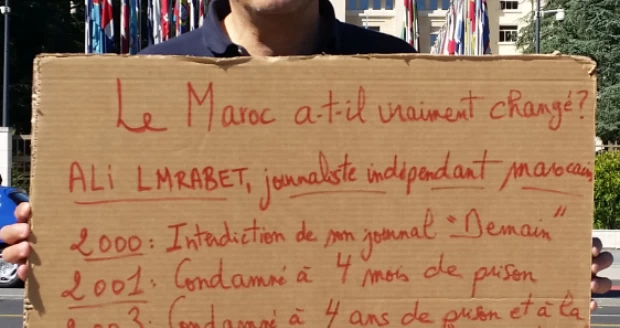 Le Maroc a-t-il vraiment changé?
ALi LMRABET, journaliste indépendant marocain
2000: Interdiction de mon journal "Demain"
2001: Condamné à 4 mois de prison
2003: Condamné à 4 ans de prison et à la